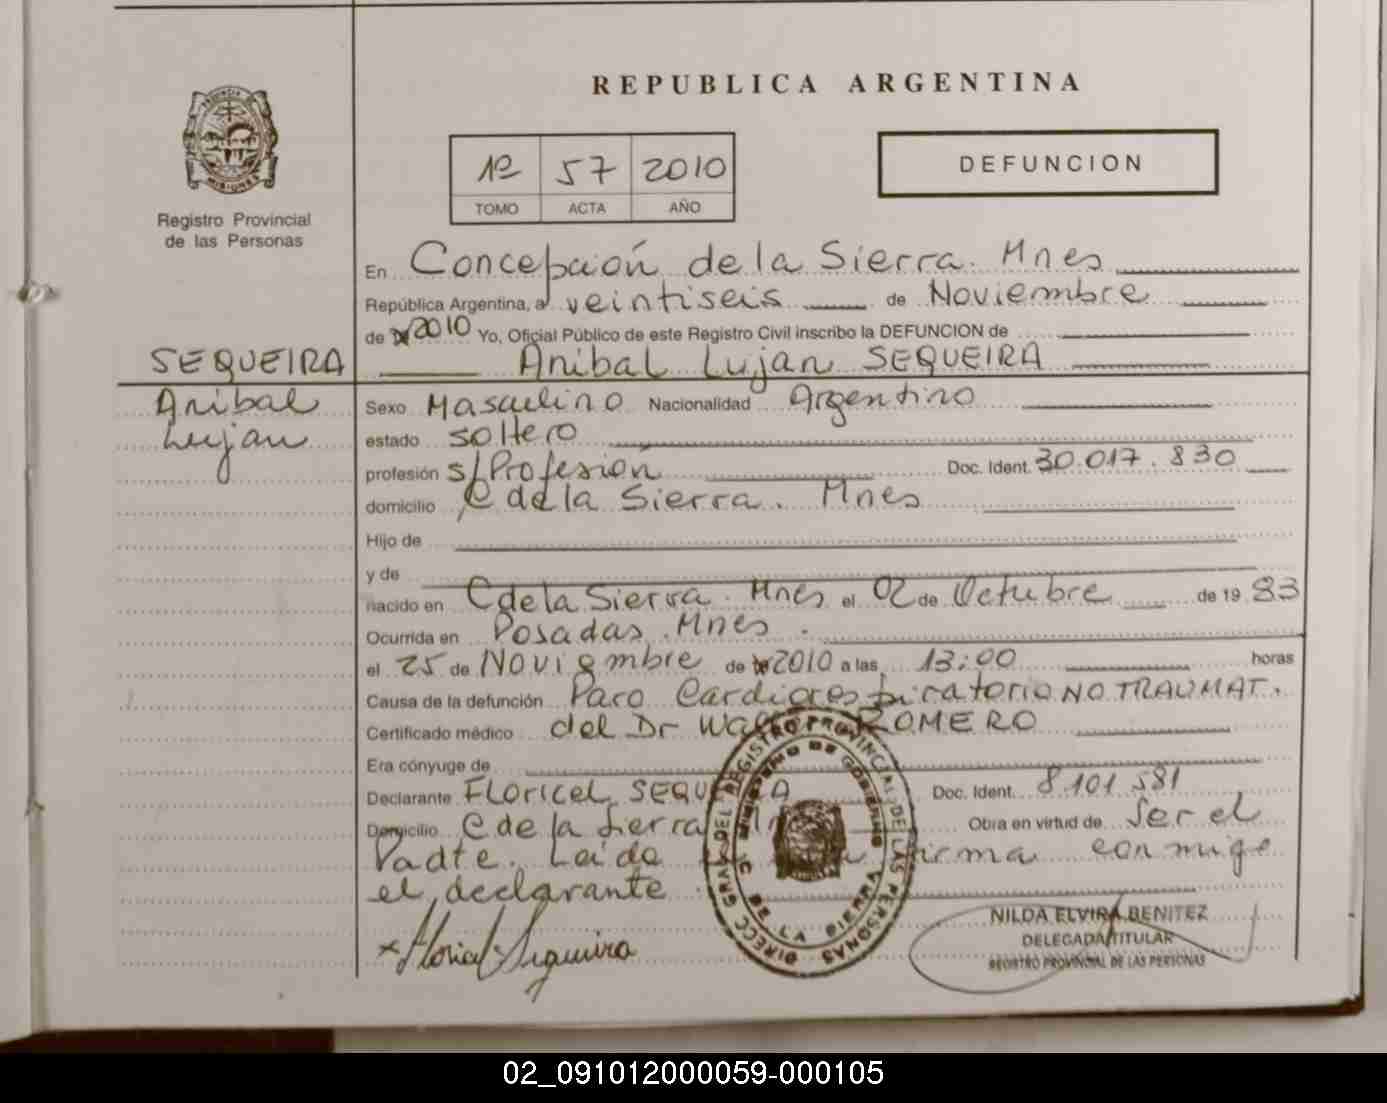 REPUBLICA ARGENTINA
PROVINCIA DE MISIONES
Registro Provincial
de las Personas
1º 57 2010
TOMO ACTA AÑO
DEFUNCION
En Concepción de la Sierra. Mnes
República Argentina, a veintiseis de Noviembre
de 2010 Yo, Oficial Público de este Registro Civil inscribo la DEFUNCION de
SEQUEIRA
Anibal
Lujan
Anibal Lujan SEQUEIRA
Sexo Masculino Nacionalidad Argentino
estado soltero
profesión s/Profesión Doc. Ident. 30.017.830
domicilio C de la Sierra. Mnes
Hijo de
y de
nacido en C de la Sierra. Mnes el 02 de Octubre de 19 83
Ocurrida en Posadas. Mnes.
el 25 de Noviembre de 2010 a las 13:00 horas
Causa de la defunción Paro Cardiorespiratorio NO TRAUMAT.
Certificado médico del Dr ROMERO
Era cónyuge de
Declarante Floricel SEQUEIRA Doc. Ident. 8.101.581
Domicilio C de la Sierra Obra en virtud de Ser el
Padre. Leida firma conmigo
el declarante
Floricel Sequeira
DIRECC GRAL DEL REGISTRO PROVINCIAL DE LAS PERSONAS
MINISTERIO DE GOBIERNO
NILDA ELVIRA BENITEZ
DELEGADA TITULAR
REGISTRO PROVINCIAL DE LAS PERSONAS
02_091012000059-000105